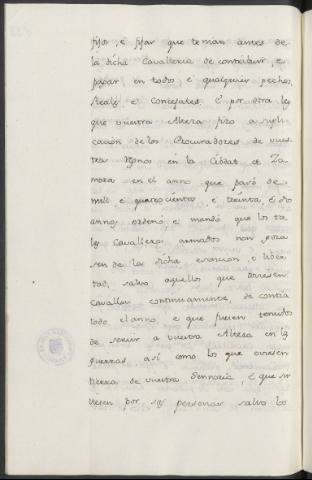 fijos, é fijas que tenian antes de
la dicha Cavalleria de contribuir, é
pagar en todos, é qualquier pechos
Reales é Concejales, é por otra ley
que vuestra Alteza fizo a supli-
cación de los Procuradores de vues-
tros Regnos en la Cibdat de Za-
mora en el anno que pasó de
mill, é quatrocientos, é treinta, é dos
annos, ordenó, é mandó que los ta-
les Cavalleros armados non goza-
sen de la dicha esencion, é liber-
tad, salvo aquellos que toviesen
Cavallos continuamente, de contia
todo el anno, é que fuesen tenudos
de servir a vuestra Alteza en las
guerras, así como los que toviesen
tierra de vuestra Sennoria, é que sir-
viesen por sus personas salvo los